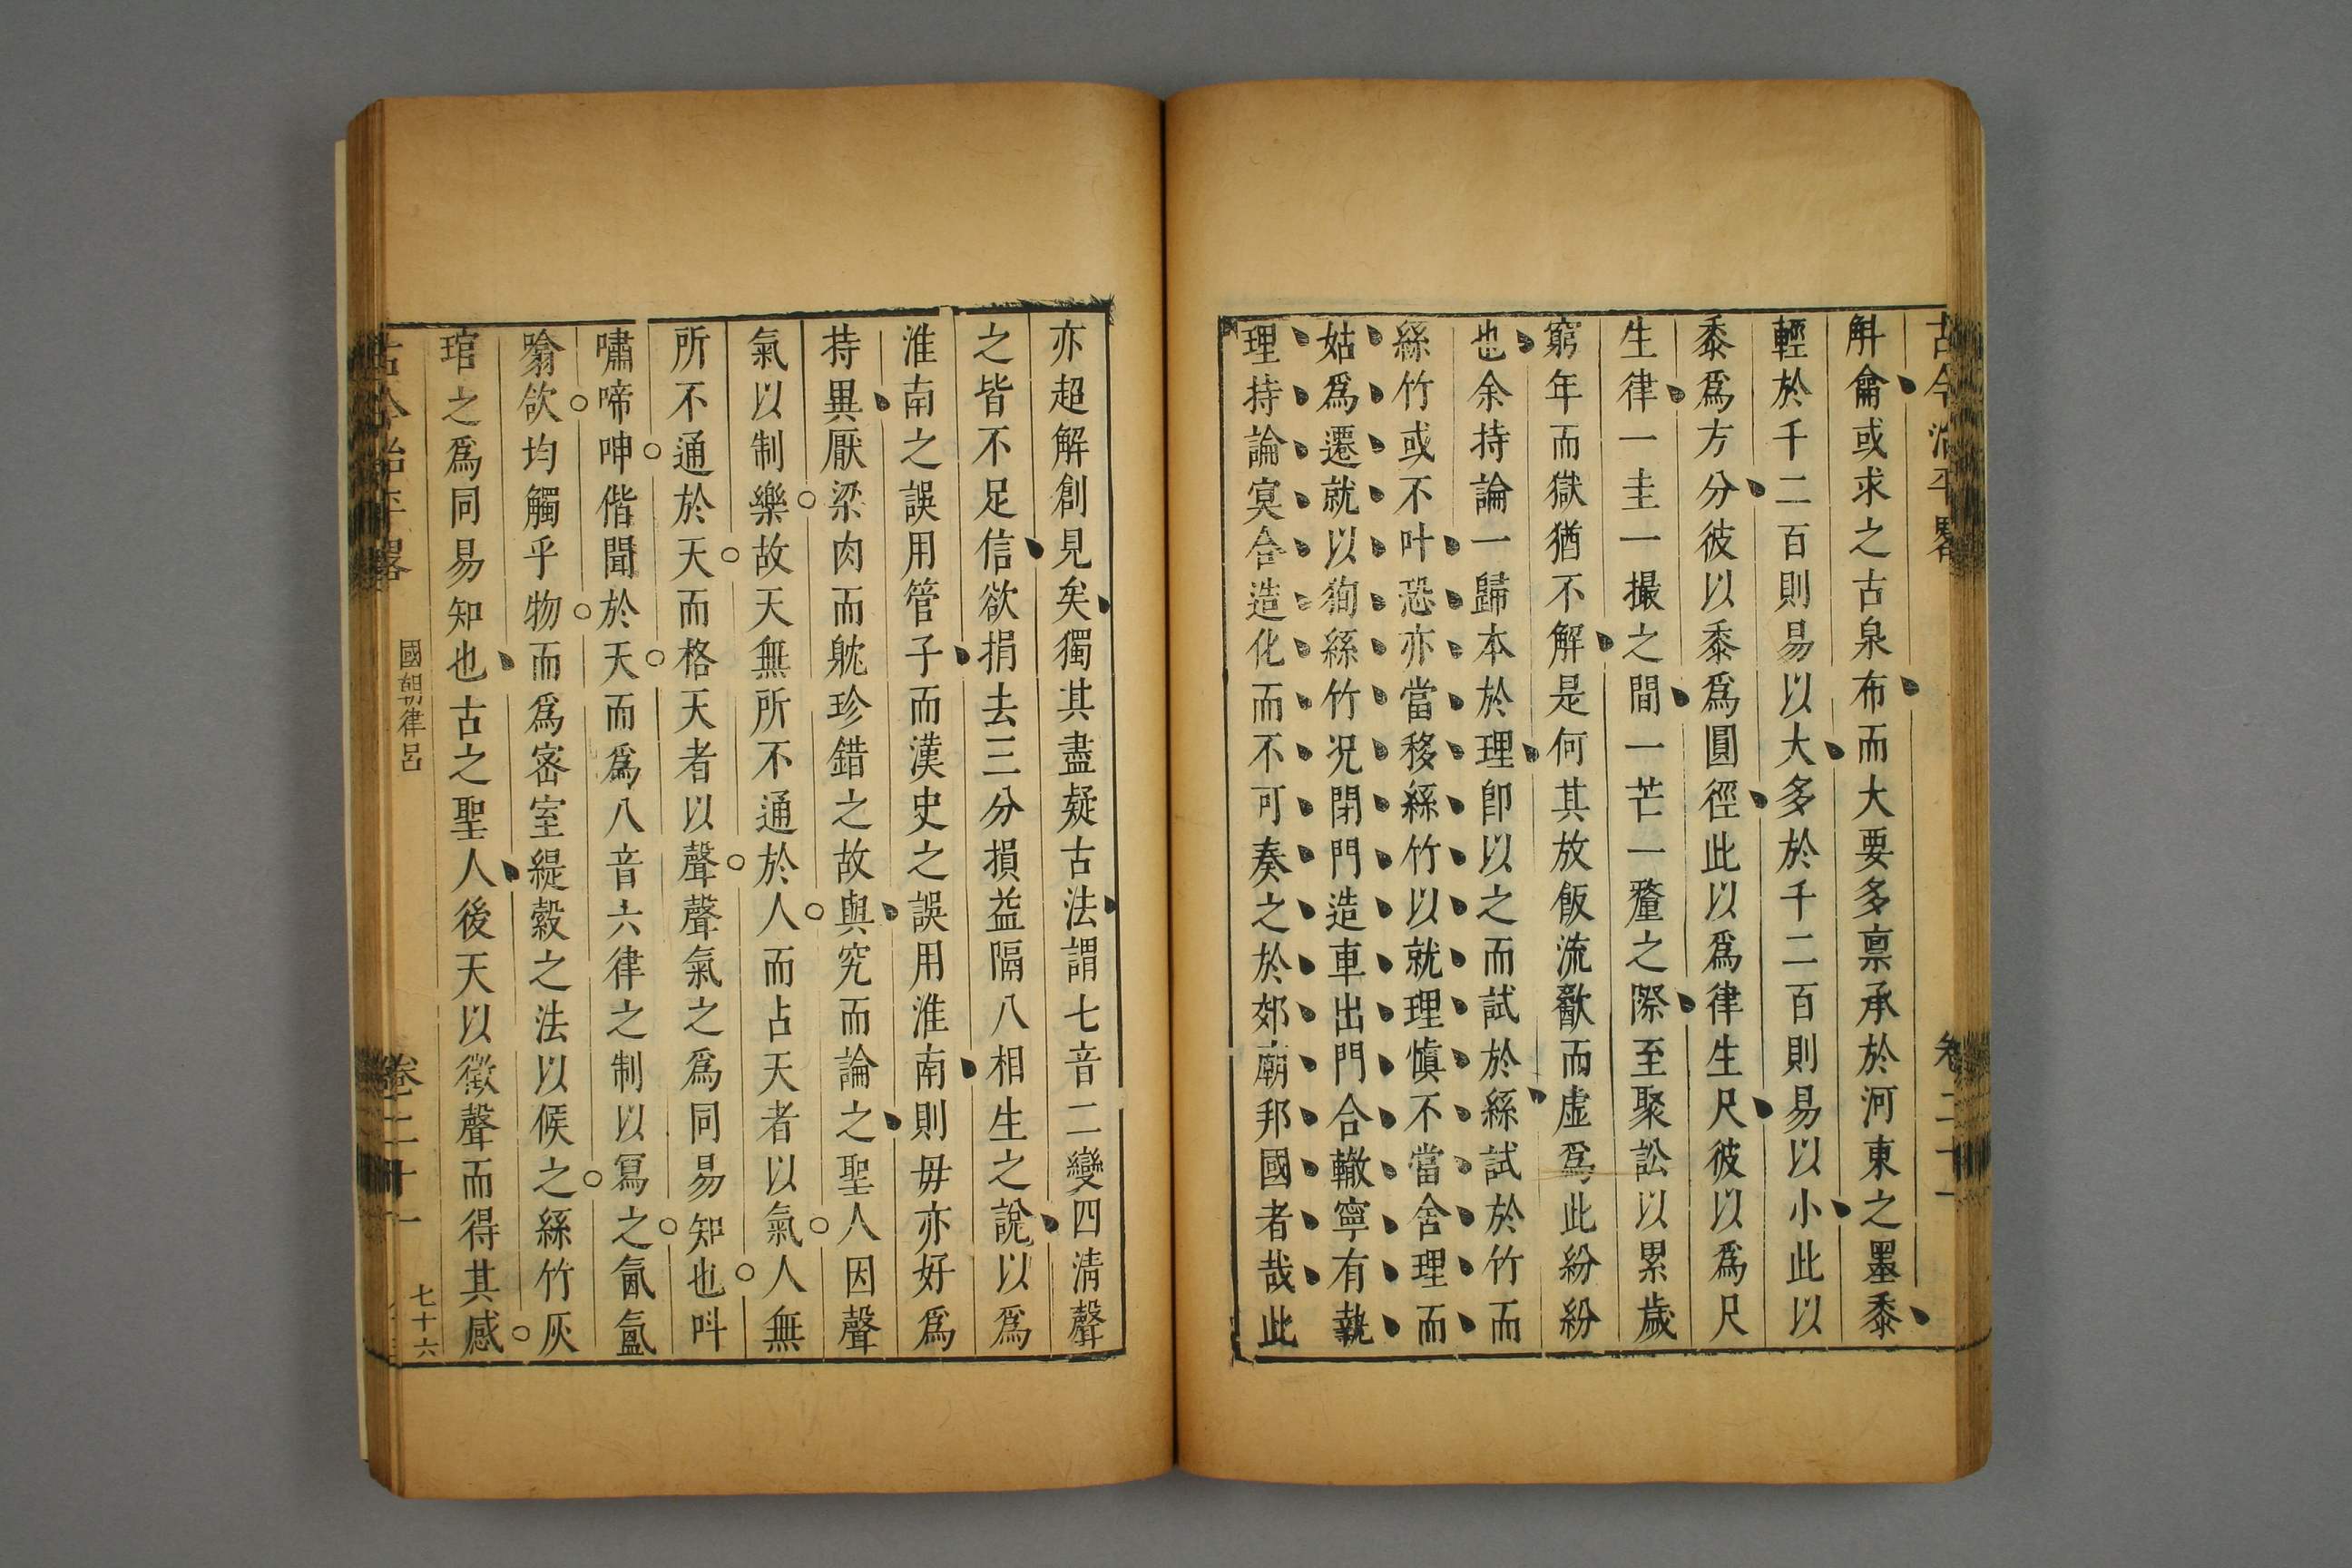 古今治平畧
卷二十一
斛龠或求之古泉布而大要多禀承於河東之墨黍
輕於千二百則易以大多於千二百則易以小此以
黍爲方分彼以黍爲圓徑此以爲律生尺彼以爲尺
生律一圭一撮之間一芒一釐之際至聚訟以累歲
窮年而獄猶不解是何其放飯流歠而虛爲此紛紛
也余持論一歸本於理卽以之而試於絲試於竹而
絲竹或不叶恐亦當移絲竹以就理愼不當舍理而
姑爲遷就以狥絲竹况閉門造車出門合轍寧有執
理持論冥合造化而不可奏之於郊廟邦國者哉此
亦超解創見矣獨其盡疑古法謂七音二變四清聲
之皆不足信欲捐去三分損益隔八相生之說以爲
淮南之誤用管子而漢史之誤用淮南則毋亦好爲
持異厭梁肉而躭珍錯之故與究而論之聖人因聲
氣以制樂故天無所不通於人而占天者以氣人無
所不通於天而格天者以聲聲氣之爲同易知也呌
嘯啼呻偕聞於天而爲八音六律之制以寫之氤氳
噏欲均觸乎物而爲宻室緹縠之法以候之絲竹灰
琯之爲同易知也古之聖人後天以徵聲而得其感
古今治平畧
國朝律呂
卷二十一
七十六